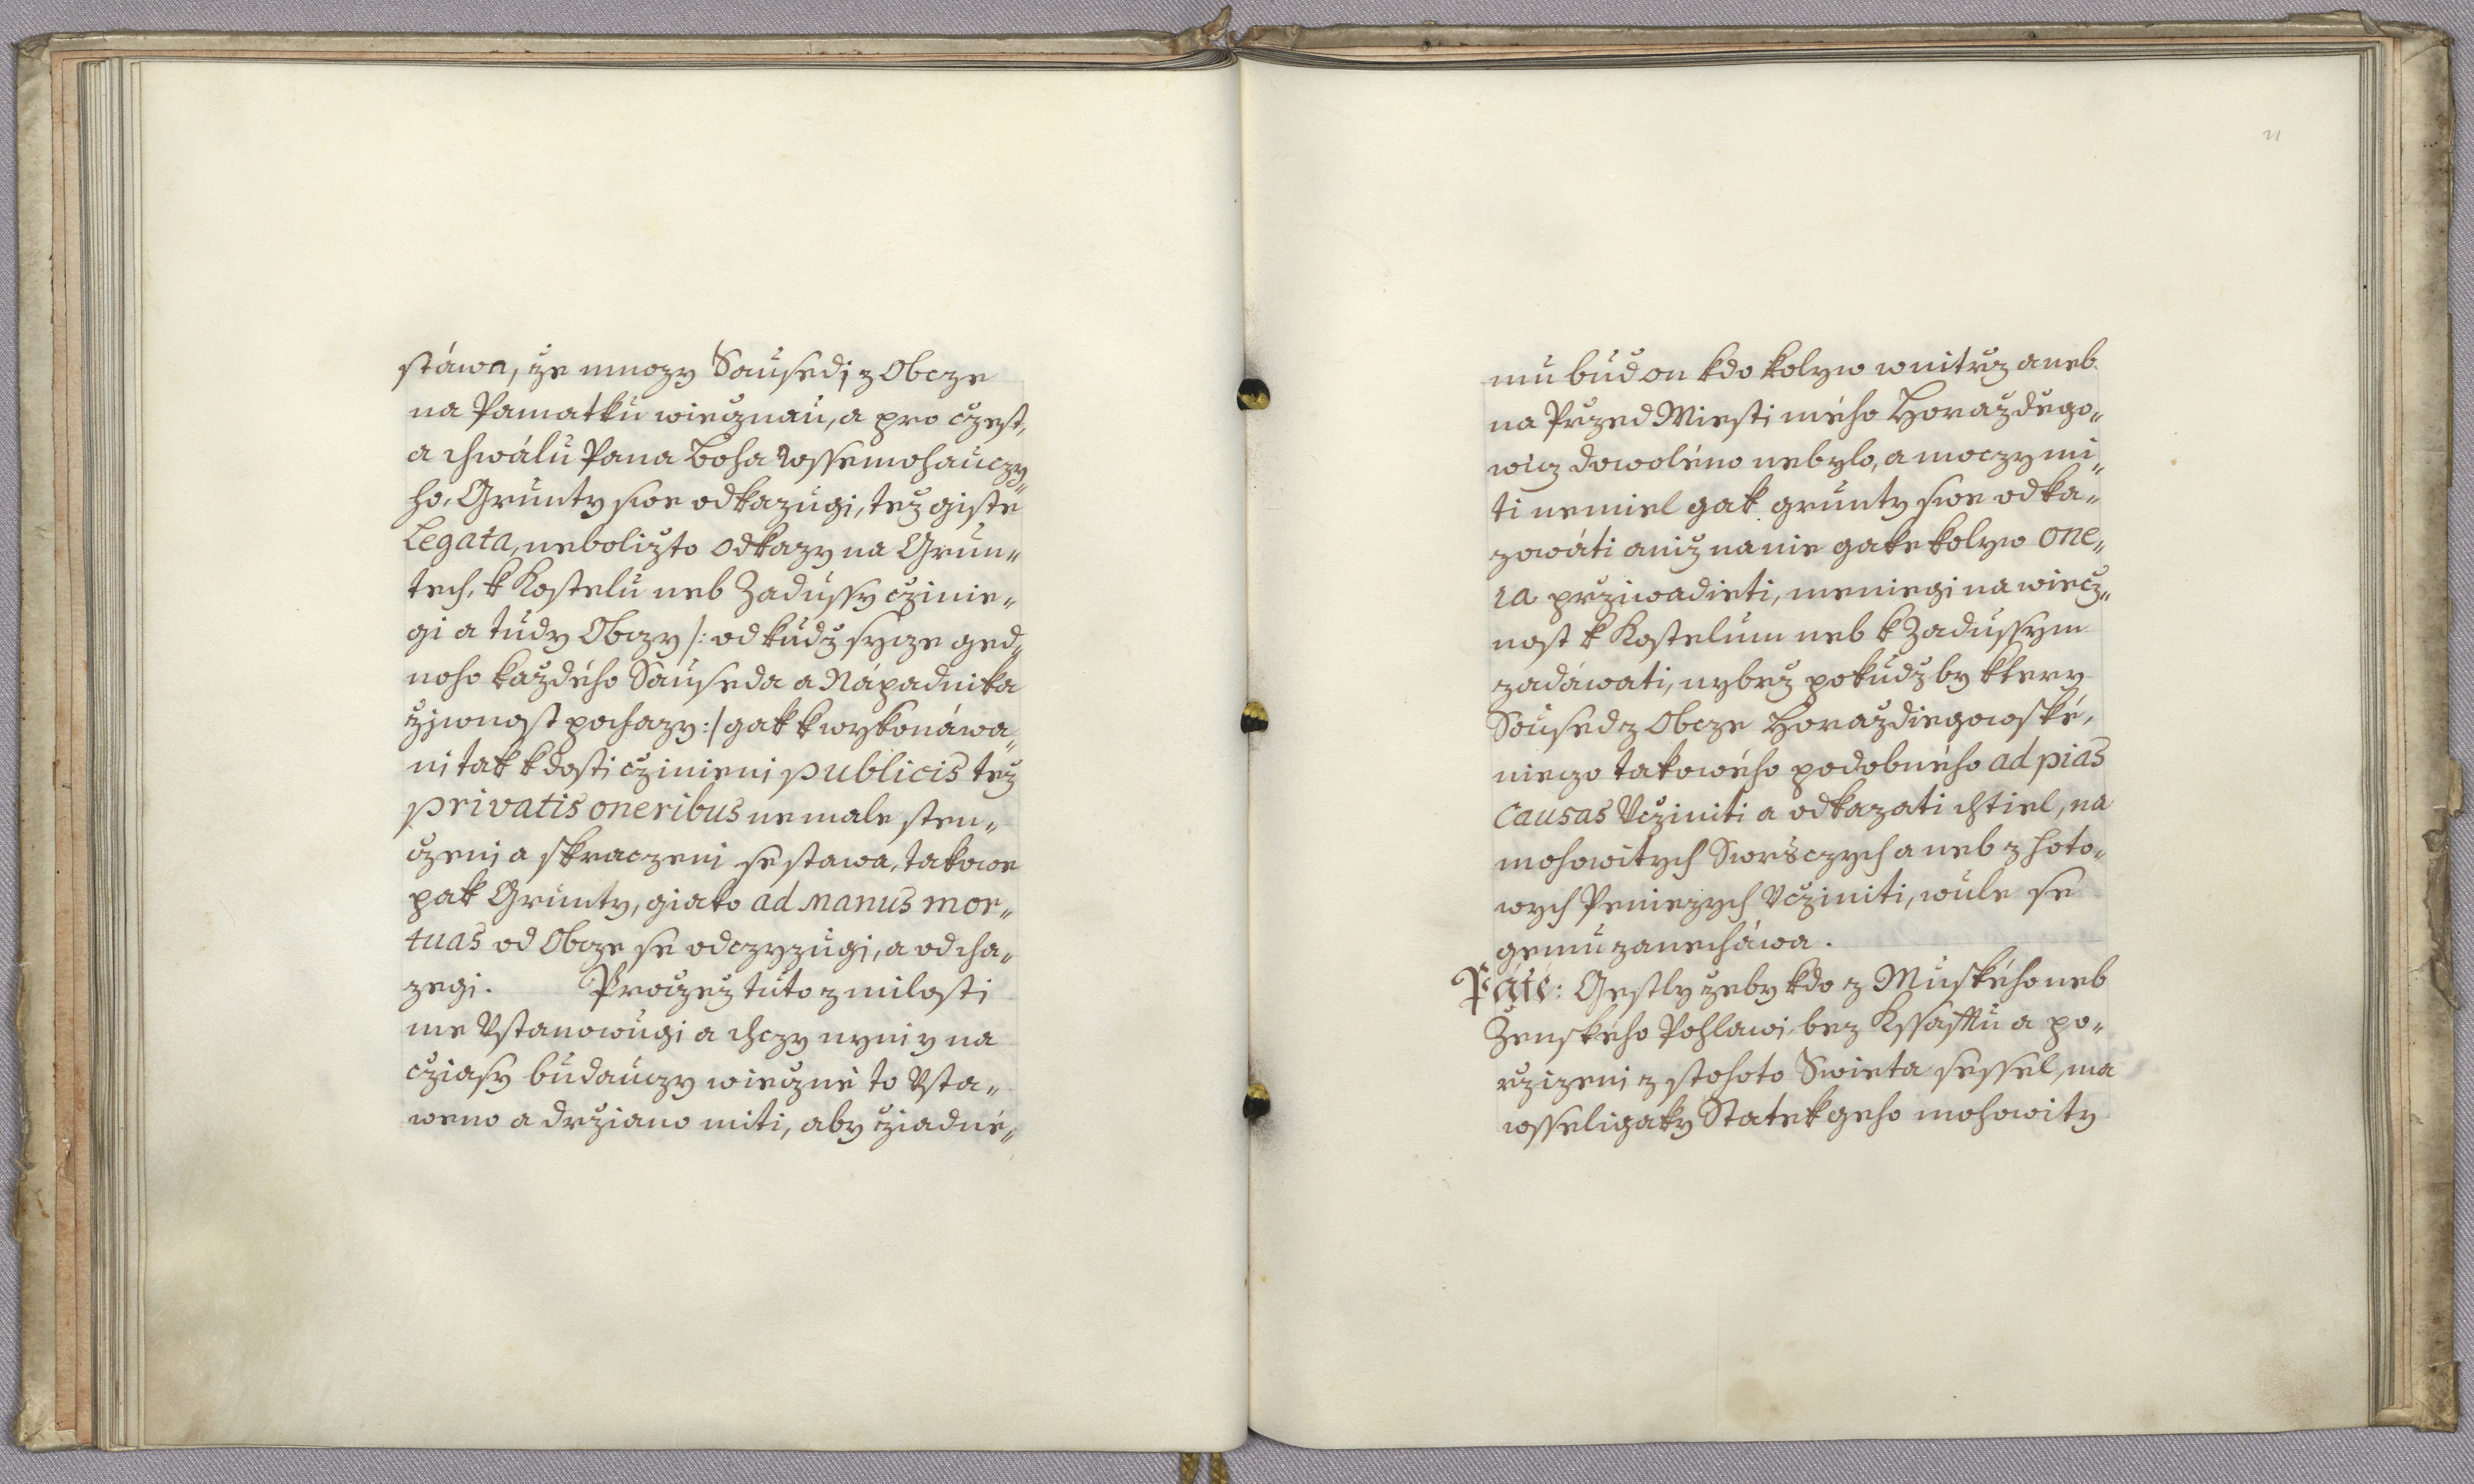 stáwa, že mnozy Sausedj z Obcze
na Pamatku wiecznau, a pro czest,
a chwálu Pana Boha Wssemohauczy„
ho, Grunty swe odkazugi, tež giste
Legata, neboližto odkazy na Grun„
tech, k Kostelu neb Zadussy czinie„
gi a tudy Obczy /: od kudž sycze ged„
noho každého Sauseda a Nápadnika
žjwnost pochazy :/ gak k wykonáwa„
ni tak k dosti czinieni publicis tež
privatis oneribus nemale sten„
czeni a skraczeni se stawa, takowe
pak Grunty, giako ad manus mor„
tuas od Obcze se odczyzugi, a odcha„
zegi. Procžež tuto z milosti
me Ustanowugi a chczy nyni y na
cziasy budauczy wiecžnė to Usta„
weno a držiano miti, aby žiadné„
21
mu bud on kdo kolyw wnitrž aneb
na Przed Miesti mého Horaždėgo„
wicz dowoléno nebylo, a moczy mi„
ti nemiel gak grunty swe odka„
zowáti aniž na nie gake kolyw one„
ra prziwadieti, meniegi na wiecž„
nost k Kostelum neb k Zadussym
zadáwati, nybrž pokudž by ktery
Soused z Obcze Horaždiegowské,
nieczo takowého podobného ad pias
causas Ucžiniti a odkazati chtiel, na
mohowitych Swrsczych aneb z hoto„
wych Peniezych Ucžiniti, wule se
gemu zanecháwa.
Páté: Gestly žeby kdo z Mužského neb
Ženského Pohlawi bez Kssafftu a po„
ržizeni z stohoto Swieta sessel, ma
wsseligaky Statek geho mohowity